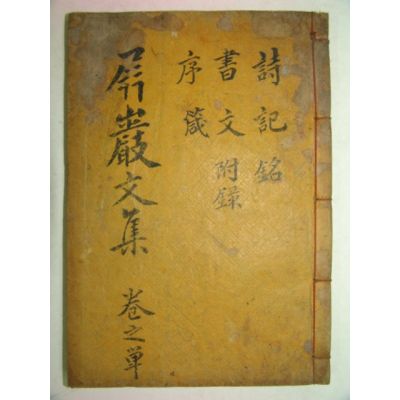 詩記銘
書文附錄
序箴
巖文集 卷之単